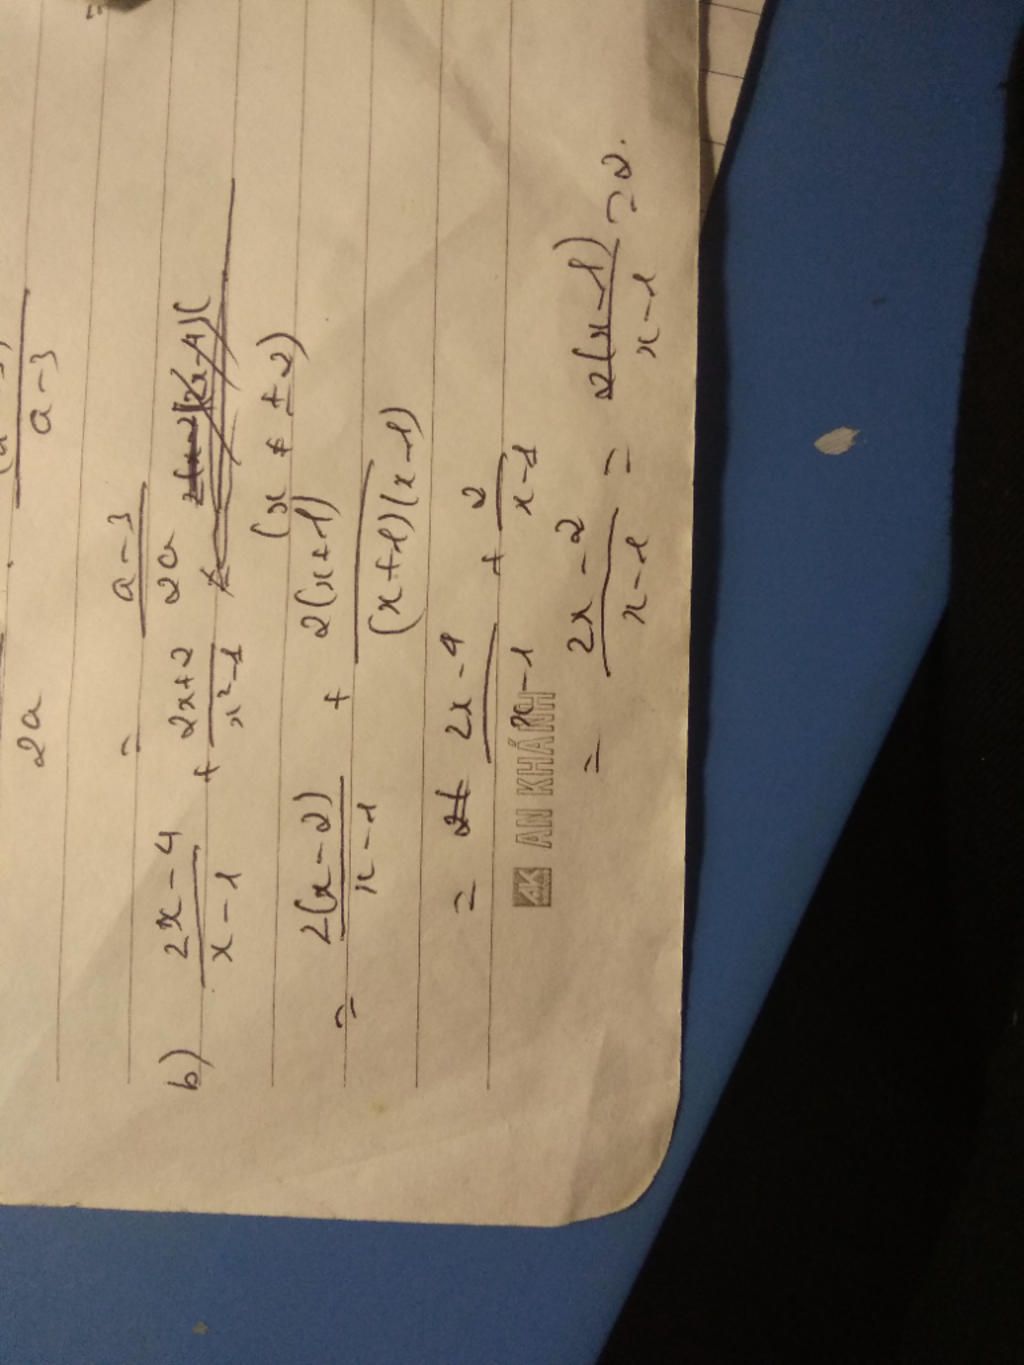 a - 3
2a
= a - 3 / 2a
b) 2x - 4 / x - 1 + 2x + 2 / x² - 1
(x + 2)
= 2(x - 2) / x - 1 + 2(x + 1) / (x + 1)(x - 1)
= 2x - 4 / x - 1 + 2 / x - 1
AK AN KHÁNH
= 2x - 2 / x - 1 = 2(x - 1) / x - 1 = 2.